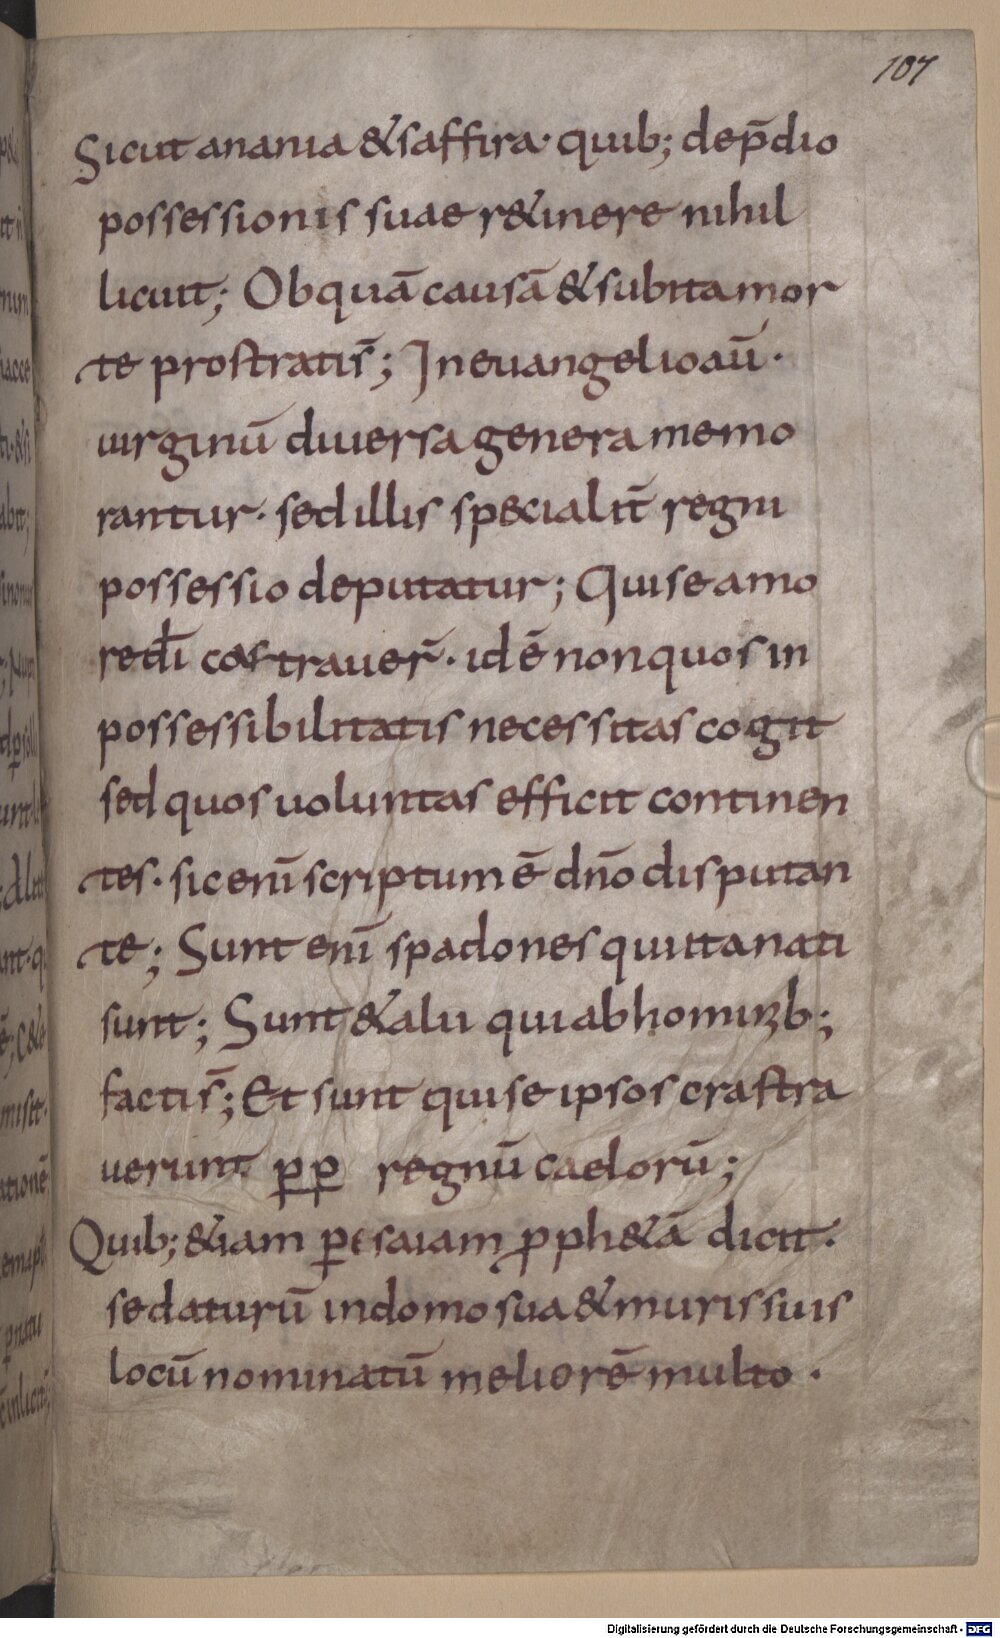 107
Sicut anania & saffira· quib; dep̄dio
possessionis suae r&inere nihil
licuit; Obquā causā & subita mor
te prostratis̄; In euangelio aū·
uirginū diuersa genera memo
rantur· sed illis sp&cialit̄ regni
possessio deputatur; Qui se amo
re dī castrauer̄· id ē non quos in
possessibilitatis necessitas cogit
sed quos uoluntas efficit continen
tes· sic enī scriptum ē dn̄o disputan
te; Sunt enī spadones qui ita nati
sunt; Sunt & alii qui ab hominib;
factis̄; Et sunt qui se ipsos crastra
uerunt ꝑꝑ regnū caelorū;
Quib; &iam ꝑ esaiam ꝓph&ā dicit·
se daturū in domo sua & muris suis
locū nominatū meliorē multo ·
Digitalisierung gefördert durch die Deutsche Forschungsgemeinschaft - DFG